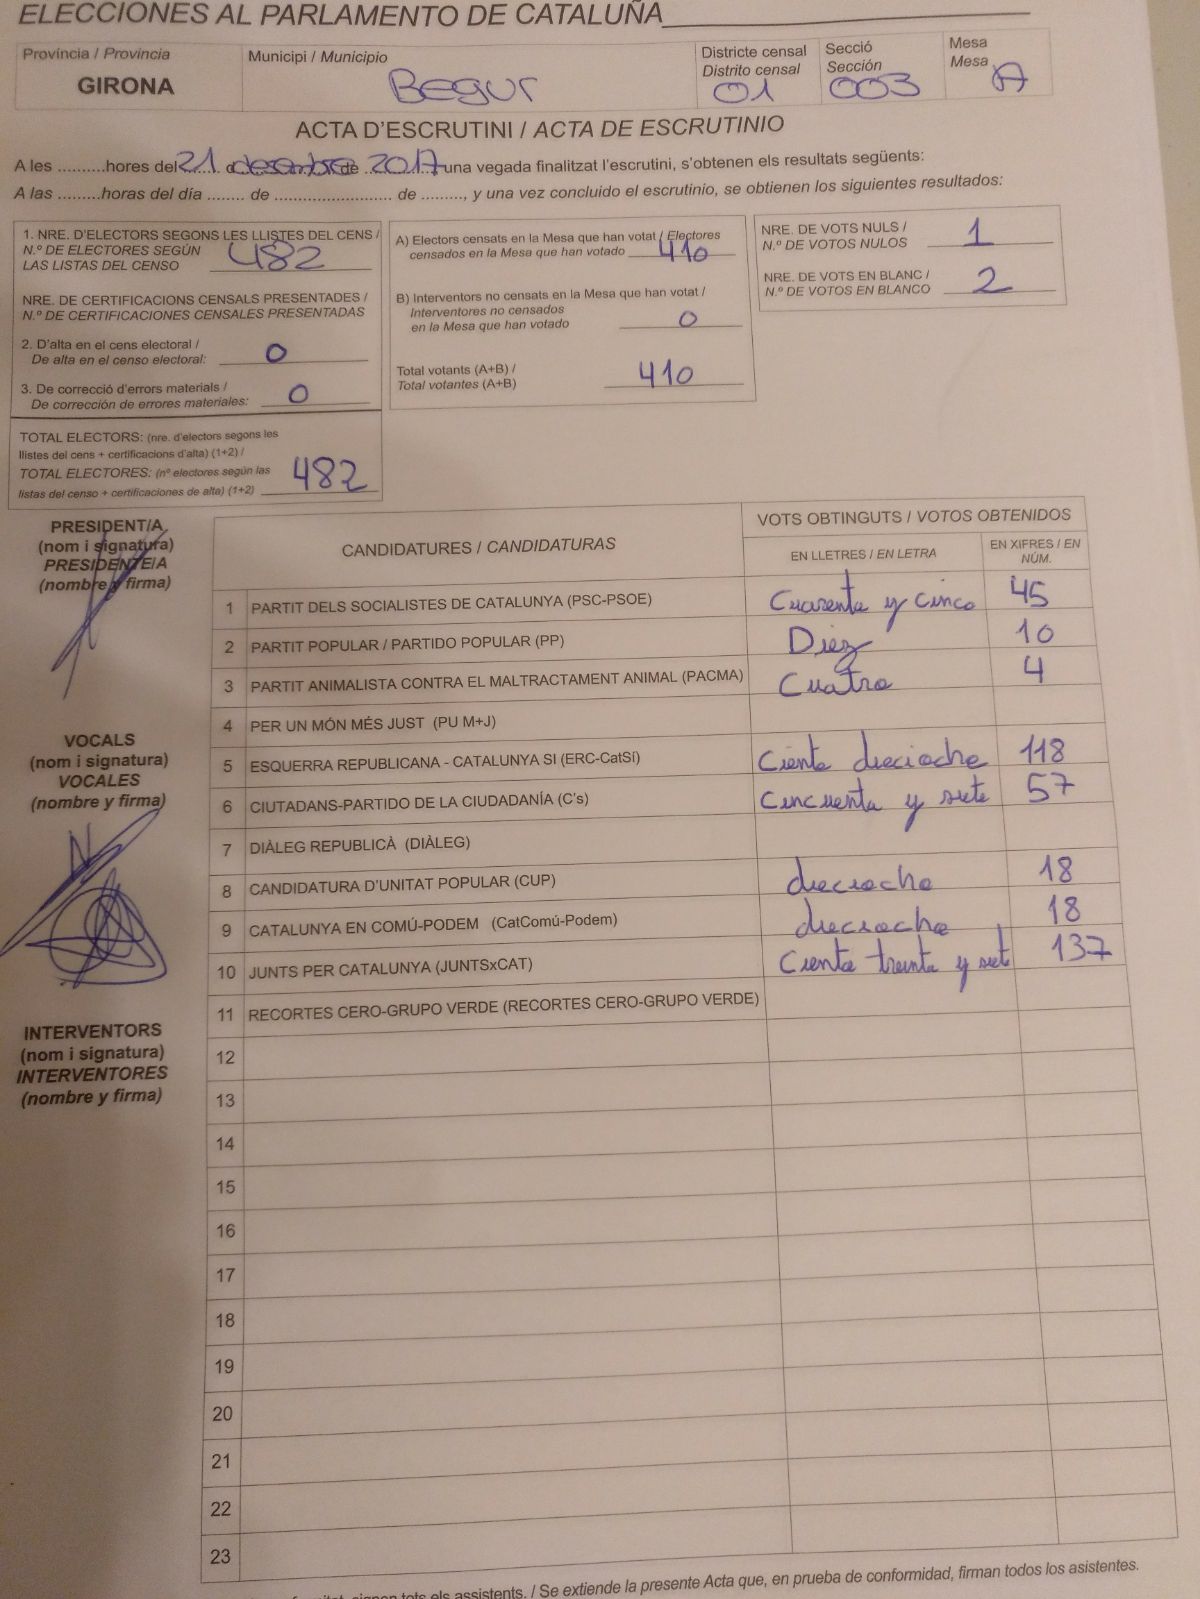 ELECCIONES AL PARLAMENTO DE CATALUÑA
Província / Provincia
GIRONA
Municipi / Municipio
Begur
Districte censal
Distrito censal
01
Secció
Sección
003
Mesa
Mesa
A
ACTA D'ESCRUTINI / ACTA DE ESCRUTINIO
A les .......... hores del 21 desembre de 2017 una vegada finalitzat l'escrutini, s'obtenen els resultats següents:
A las ......... horas del día ........ de .......................... de ........., y una vez concluido el escrutinio, se obtienen los siguientes resultados:
1. NRE. D'ELECTORS SEGONS LES LLISTES DEL CENS /
N.º DE ELECTORES SEGÚN
LAS LISTAS DEL CENSO 482
NRE. DE CERTIFICACIONS CENSALS PRESENTADES /
N.º DE CERTIFICACIONES CENSALES PRESENTADAS
2. D'alta en el cens electoral /
De alta en el censo electoral: 0
3. De correcció d'errors materials /
De corrección de errores materiales: 0
TOTAL ELECTORS: (nre. d'electors segons les
llistes del cens + certificacions d'alta) (1+2) /
TOTAL ELECTORES: (nº electores según las
listas del censo + certificaciones de alta) (1+2) 482
A) Electors censats en la Mesa que han votat / Electores
censados en la Mesa que han votado 410
B) Interventors no censats en la Mesa que han votat /
Interventores no censados
en la Mesa que han votado 0
Total votants (A+B) /
Total votantes (A+B) 410
NRE. DE VOTS NULS /
N.º DE VOTOS NULOS 1
NRE. DE VOTS EN BLANC /
N.º DE VOTOS EN BLANCO 2
PRESIDENT/A
(nom i signatura)
PRESIDENTE/A
(nombre y firma)
VOCALS
(nom i signatura)
VOCALES
(nombre y firma)
INTERVENTORS
(nom i signatura)
INTERVENTORES
(nombre y firma)
CANDIDATURES / CANDIDATURAS
VOTS OBTINGUTS / VOTOS OBTENIDOS
EN LLETRES / EN LETRA
EN XIFRES / EN
NÚM.
1 PARTIT DELS SOCIALISTES DE CATALUNYA (PSC-PSOE) Cuarenta y cinco 45
2 PARTIT POPULAR / PARTIDO POPULAR (PP) Diez 10
3 PARTIT ANIMALISTA CONTRA EL MALTRACTAMENT ANIMAL (PACMA) Cuatro 4
4 PER UN MÓN MÉS JUST (PU M+J)
5 ESQUERRA REPUBLICANA - CATALUNYA SI (ERC-CatSí) Ciento dieciocho 118
6 CIUTADANS-PARTIDO DE LA CIUDADANÍA (C's) Cincuenta y siete 57
7 DIÀLEG REPUBLICÀ (DIÀLEG)
8 CANDIDATURA D'UNITAT POPULAR (CUP) dieciocho 18
9 CATALUNYA EN COMÚ-PODEM (CatComú-Podem) dieciocho 18
10 JUNTS PER CATALUNYA (JUNTSxCAT) Ciento treinta y siete 137
11 RECORTES CERO-GRUPO VERDE (RECORTES CERO-GRUPO VERDE)
12
13
14
15
16
17
18
19
20
21
22
23
tots els assistents. / Se extiende la presente Acta que, en prueba de conformidad, firman todos los asistentes.